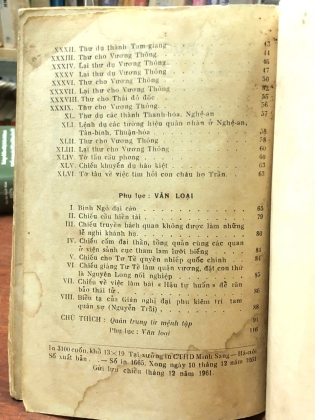 XXXII. Thư dụ thành Tam-giang 43
XXXIII. Thư cho Vương Thông. 44
XXXIV. Lại thư dụ Vương Thông 46
XXXV Lại thư dụ Vương Thông 47
XXXVI. Thư cho Vương Thông
XXXVII. Lại thư cho Vương Thông 52
XXXVIII. Thư cho Thái đô đốc
XXXIX. Thư cho Vương Thông 56
XL. Thư dụ các thành Thanh-hoá, Nghệ-an 57
XLI. Lệnh dụ các tướng hiệu quân nhân ở Nghệ-an,
Tân-bình, Thuận-hóa 58
XLII. Thư cho Vương Thông
XLIII. Lại thư cho Vương Thông 60
XLIV. Tờ tấu cầu phong
XLV. Chiếu khuyến dụ hào kiệt
XLVI Tờ tâu về việc tìm hỏi con cháu họ Trần.
Phụ lục: VĂN LOẠI
I. Bình Ngô đại cáo 65
II. Chiếu cầu hiền tài 79
III. Chiếu truyền bách quan không được làm những
lễ nghi khánh hạ 80
IV. Chiếu cấm đại thần, tổng quản cùng các quan
ở viện sảnh cục tham lam lười biếng 81
V. Chiếu cho Tư Tề quyền nhiếp quốc chính
VI. Chiếu giáng Tư Tề làm quận vương, đặt con thứ
là Nguyên Long nối nghiệp
VII. Chiếu về việc làm bài « Hậu tự huấn » để răn
bảo thái tử.
VIII. Biểu tạ của Gián nghị đại phu kiêm tri tam
quán sự (Nguyễn Trãi)
CHÚ THÍCH: Quân trung từ mệnh tập 91
Phụ lục: Văn loại
In 3100 cuốn, khổ 13×19 Tại xưởng in CTHD Minh Sang — Hà-nội
Số xuất bản. — Số in 4665. Xong ngày 10 tháng 12 năm 1961
Gửi lưu chiểu tháng 12 năm 1961.